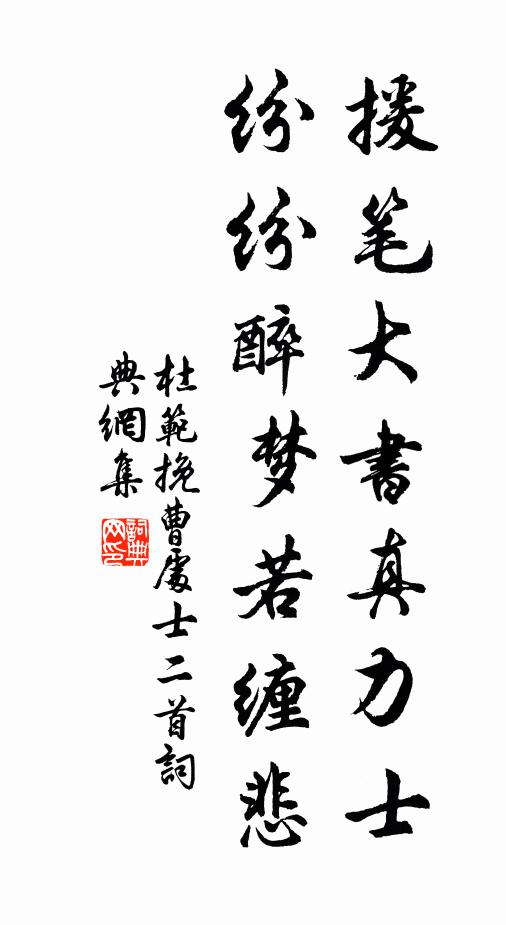 援笔大書真力士
纷纷醉梦若缠悲
杜範挽曹處士二首詞
典網集
詞典网印